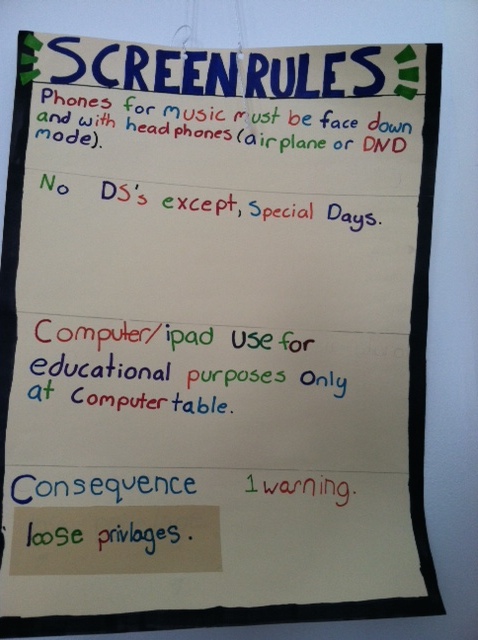 SCREEN RULES
Phones for music must be face down
and with headphones (airplane or DND
mode).
No DS's except, Special Days.
Computer/ipad Use for
educational purposes Only
at Computer table.
Consequence 1 warning.
loose privlages.